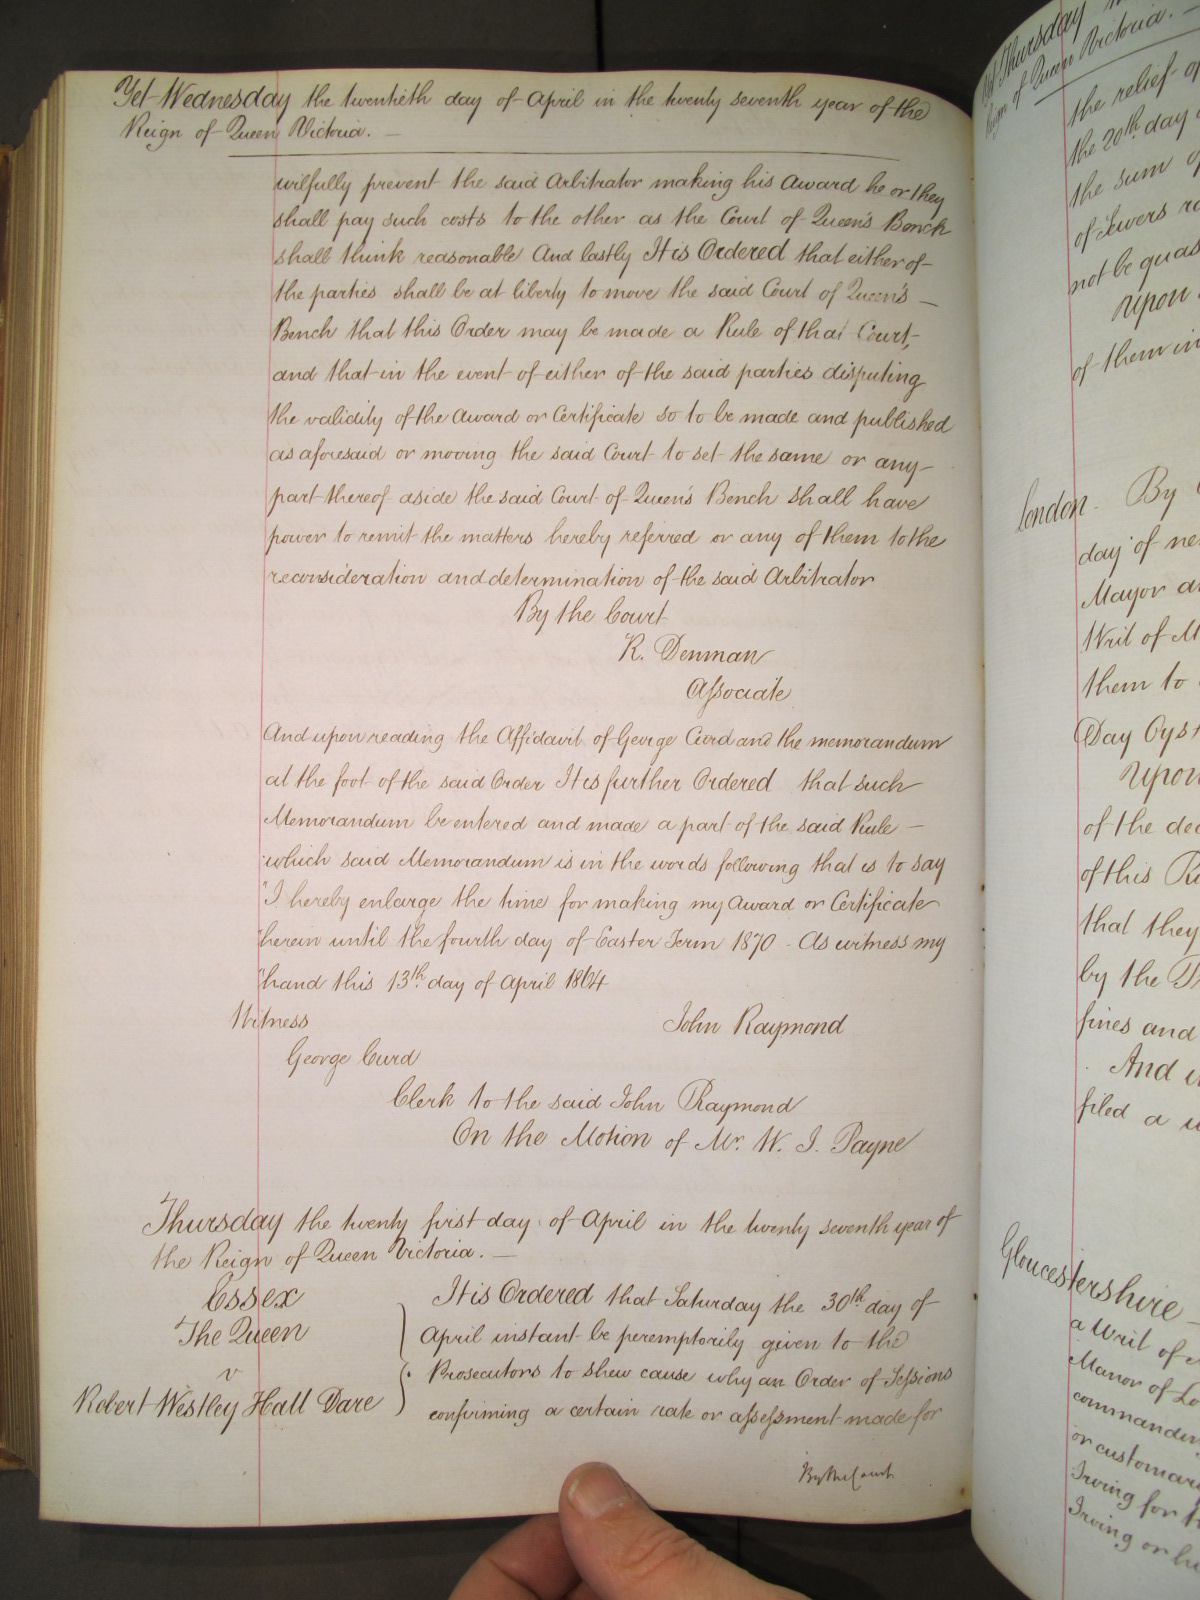 Yet Wednesday the twentieth day of April in the twenty seventh year of the
Reign of Queen Victoria. —
wilfully prevent the said Arbitrator making his Award he or they
shall pay such costs to the other as the Court of Queen's Bench
shall think reasonable And lastly It is Ordered that either of
the parties shall be at liberty to move the said Court of Queen's —
Bench that this Order may be made a Rule of that Court,
and that in the event of either of the said parties disputing
the validity of the Award or Certificate so to be made and published
as aforesaid or moving the said Court to set the same or any
part thereof aside the said Court of Queen's Bench shall have
power to remit the matters hereby referred or any of them to the
reconsideration and determination of the said Arbitrator
By the Court
R. Denman
Associate
And upon reading the Affidavit of George Curd and the memorandum
at the foot of the said Order It is further Ordered that such
Memorandum be entered and made a part of the said Rule —
which said Memorandum is in the words following that is to say
"I hereby enlarge the time for making my Award or Certificate
"herein until the fourth day of Easter Term 1870 - As witness my
"hand this 13th day of April 1864
Witness John Raymond
George Curd
Clerk to the said John Raymond
On the Motion of Mr. W. J. Payne
Thursday the twenty first day of April in the twenty seventh year of
the Reign of Queen Victoria. —
Essex
The Queen
v
Robert Westley Hall Dare
It is Ordered that Saturday the 30th day of
April instant be peremptorily given to the
Prosecutors to shew cause why an Order of Sessions
confirming a certain rate or assessment made for
By the Court
Thursday
Reign of Queen Victoria. —
the relief of
the 20th day
the sum of
of Sewers
not be quas
upon
of them in
London. By
day of ne
Mayor an
Writ of M
them to
Day Oyst
upon
of the dec
of this Ru
that they
by the
fines and
And
filed a
Gloucestershire —
a Writ of
Manor of Lo
commandin
or customar
Irving for
Irving or hi